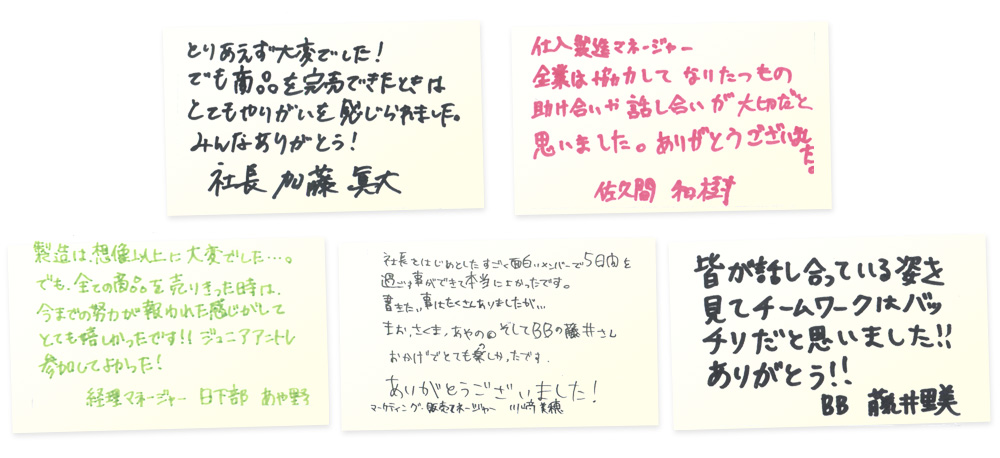 とりあえず大変でした!
でも商品を完売できたときは
とてもやりがいを感じられました。
みんなありがとう!
社長 加藤 真大
仕入製造マネージャー
企業は協力して なりたつもの
助け合いや話し合いが大切だと
思いました。ありがとうございました。
佐久間 和樹
製造は、想像以上に大変でした…。
でも、全ての商品を売りきった時は、
今までの努力が報われた感じがして
とても嬉しかったです!! ジュニアアントレ
参加してよかった!
経理マネージャー 日下部 あや野
社長をはじめとしたすごく面白いメンバーで5日間を
過ごす事ができて本当によかったです。
書きたい事はたくさんありましたが、、
まお、さくま、あやのそしてBBの藤井さん
おかげでとても楽しかったです.
ありがとうございました!
マーケティング・販売マネージャー 川崎 美穂
皆が話し合っている姿を
見てチームワークはバッ
チリだと思いました!!
ありがとう!!
BB 藤井里美